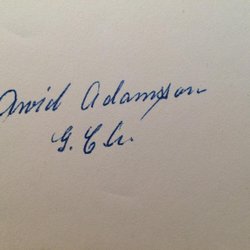 David Adamson
G.C.W.